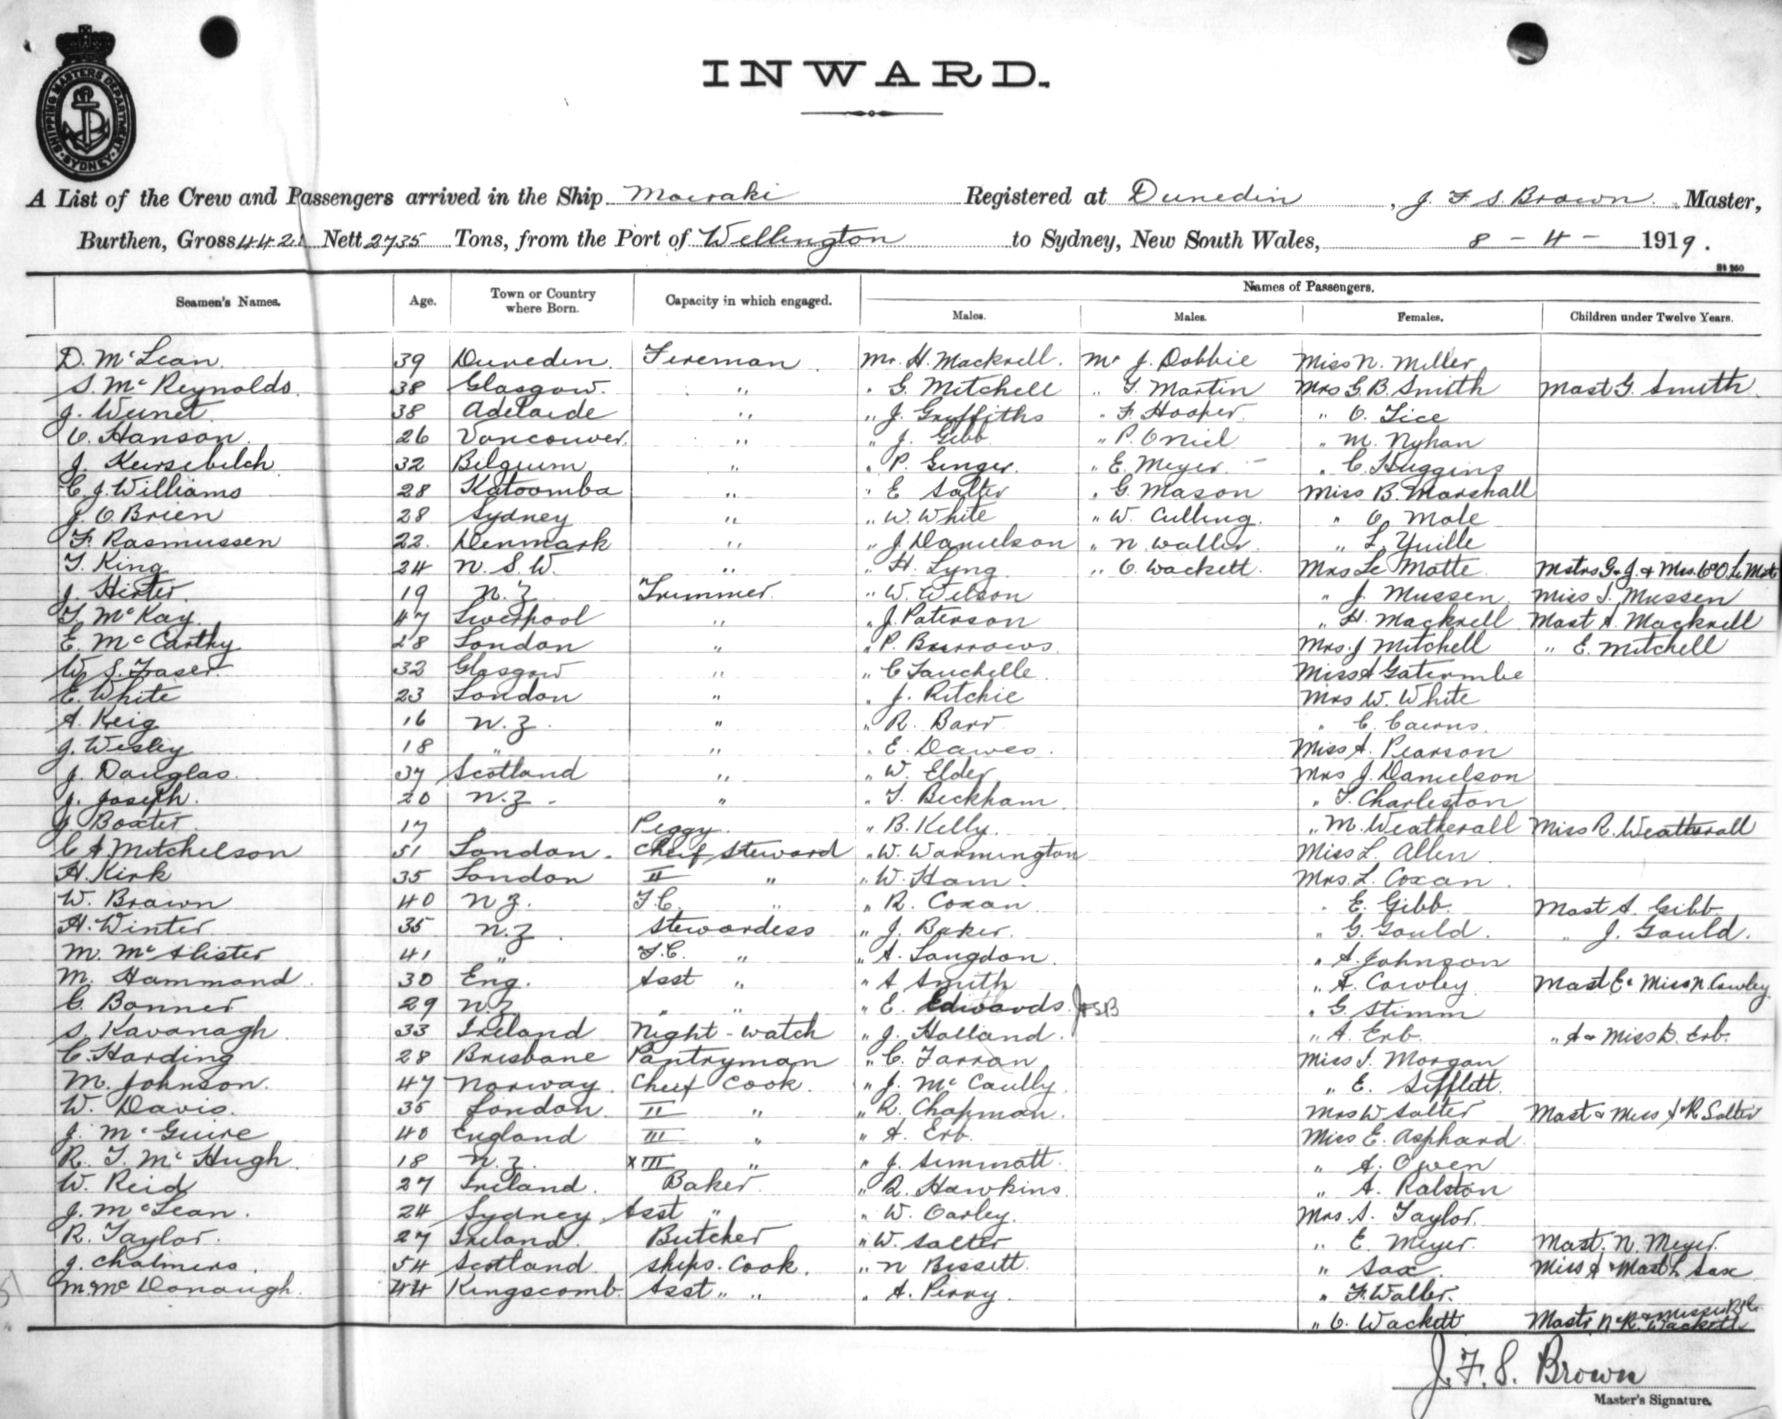 SHIPPING MASTERS DEPARTMENT SYDNEY
INWARD.
A List of the Crew and Passengers arrived in the Ship Moeraki Registered at Dunedin, J. F. S. Brown. Master,
Burthen, Gross 4421 Nett 2735 Tons, from the Port of Wellington to Sydney, New South Wales, 8 - 4 - 1919.
Names of Passengers.
Seamen's Names. Age. Town or Country where Born. Capacity in which engaged. Males. Males. Females. Children under Twelve Years.
D. McLean 39 Dunedin Fireman Mr. H. Macknell. Mr J. Dobbie Miss N. Miller
S. McReynolds 38 Glasgow. " " G. Mitchell " T Martin Mrs G. B. Smith Mast G. Smith
J. 38 Adelaide " " J. Gryffiths " F. Hooper " O. Tice
O. Hanson 26 Vancouver. " " J. Gibb " P. Oniel " M. Nyhan
J. 32 Bilgium " " P. Ginger. " E. Meyer. " C. Huggins
C. J. Williams 28 Katoomba " " E Salter " G. Mason Miss B. Marshall
J. O Brien 28 Sydney " " W. White " W. Culling. " O. Mole
F. Rasmussen 22. Denmark " " J. Danielson " N. Waller " L. Yuille
T. King 24 N. S. W. " " H. Lyng " O. Wackett. Mrs Le Motte
J. 19 N. Z. Trimmer. " W. Wilson " J. Mussen Miss J. Mussen
T. McKay. 47 Liverpool " " J. Paterson " H. Macknell Mast A. Macknell
E. McCarthy 28 London " " P. Burrows. Mrs. J Mitchell " E. Mitchell
W. S. Fraser 32 Glasgow " " C Miss A
E. White 23 London " " J. Ritchie Mrs W. White
A. Keig 16 N. Z. " " R. Barr " C. Cairns.
J. Wesley 18 " " " E. Dawes. Miss A. Pearson
J. Douglas. 37 Scotland " " W. Elder Mrs J. Danielson
J. Joseph. 20 N. Z. - " " T. Beckham. " T. Charleston
J Boxter 17 Peggy. " B. Kelly. " M. Weatherall Miss R. Weatherall
C A Mitchelson 51 London. Chief Steward " W. Warmington Miss L. Allen
H. Kirk 35 London II " " W. Ham. Mrs. L. Coxan.
W. Brown 40 N Z. T.C. " " R. Coxan " E. Gibb. Mast A. Gibb
H. Winter 35 N. Z. Stewardess " J. Baker. " G. Gould. " J. Gould.
M. McAlister 41 " T.C. " " A. Langdon. " A. Johnson
M. Hammond 30 Eng. Asst " " A Smith " A. Cowley Mast E & Miss N. Cowley
C. Bonner 29 N. Z " " " E. Edwards. JFSB " G. Stimm
S. Kavanagh 33 Ireland Night-Watch " J. Holland. " A. Erb. " A & Miss D. Erb.
C. Harding 28 Brisbane Pantryman " C. Farran Miss J. Morgan
M. Johnson. 47 Norway. Cheif Cook. " J. McCaully. " E. Sifflett.
W. Davis. 35 London. II " " R. Chapman. Mrs W Salter Mast & Miss J & R Salter
J. McGuire 40 England III " " A. Erb. Miss E. Asphard
R. T. McHugh. 18 N. Z. XIII " " J. Simmatt. " A. Owen
W. Reid 27 Ireland. Baker. " R. Hawkins. " A. Ralston
J. McLean. 24 Sydney Asst " " W. Oarley. Mrs. A. Taylor.
R. Taylor. 27 Ireland. Butcher " W. Salter " E. Meyer. Mast. N. Meyer.
J. Chalmers. 54 Scotland Ships. Cook. " N Bissett. " Sax. Miss A & Mast L Sax
M. McDonaugh. 44 Kingscomb Asst " " " A. Perry. " F. Waller.
" O. Wackett Masts N & R. & Misses Wackett
J. F. S. Brown
Master's Signature.